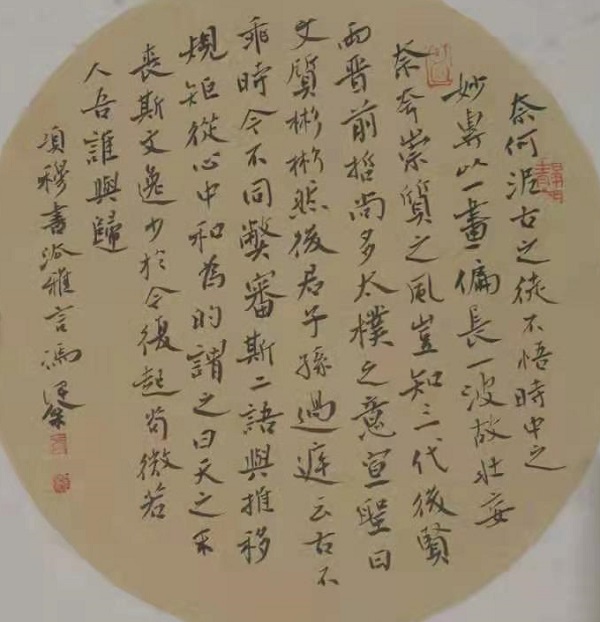 奈何泥古之徒不悟時中之
妙專以一畫偏長一波故壯妄
奈夸崇質之風豈知三代後賢
兩晉前哲尚多太樸之意宣聖曰
文質彬彬然後君子孫過庭云古不
乖時今不同弊審斯二語與推移
規矩從心中和為的謂之曰天之未
喪斯文逸少於今復起苟微若
人吾誰與歸
項穆書法雅言馮